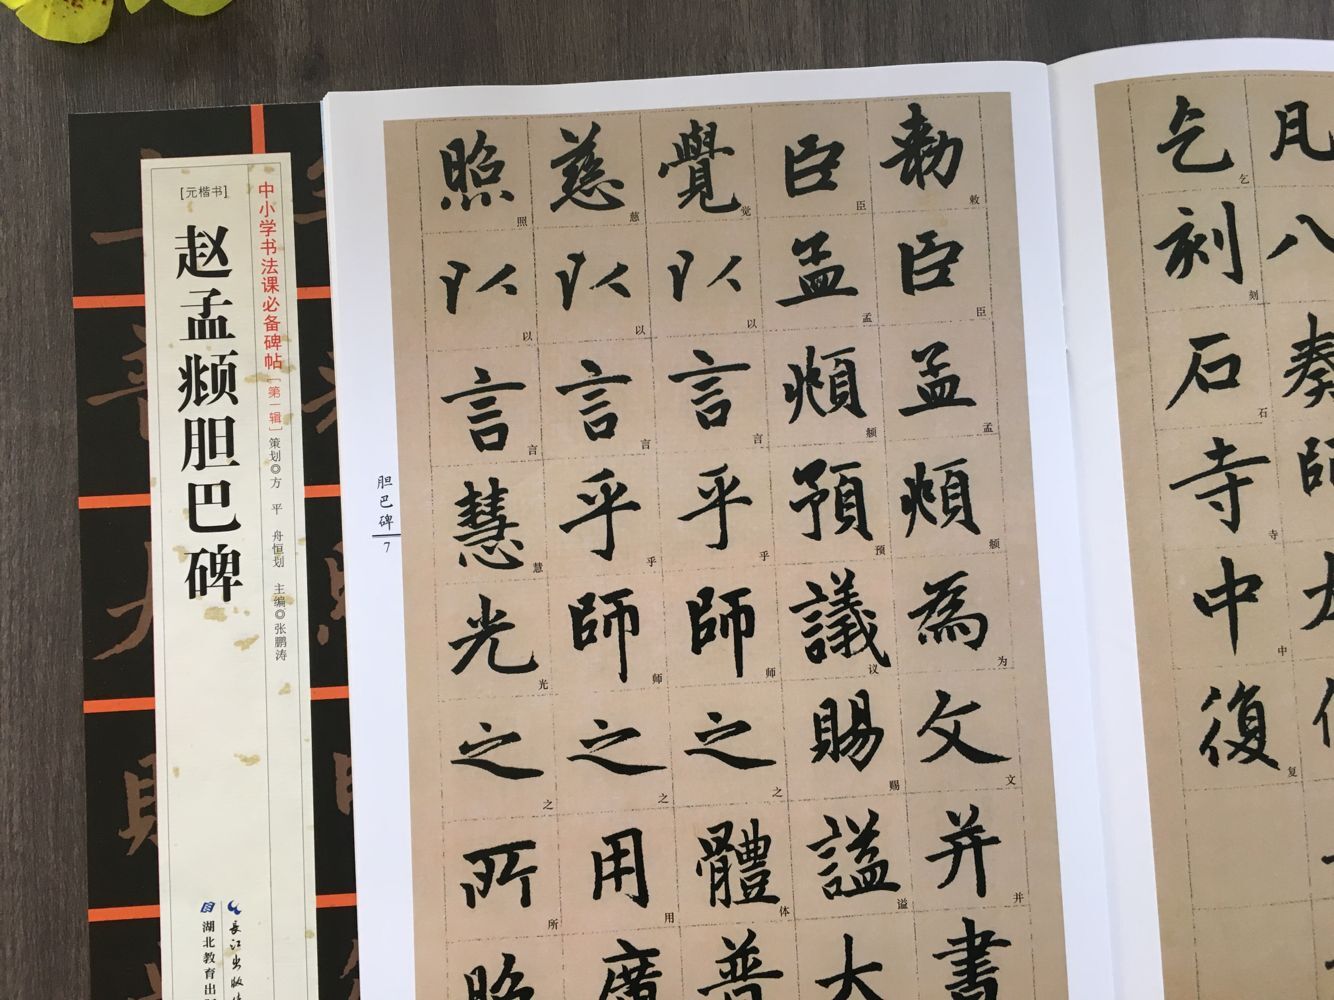 [元楷书]
赵孟頫胆巴碑
中小学书法课必备碑帖[第一辑]
策划◎方 平 舟恒划 主编◎张鹏涛
长江出版传
湖北教育出
胆巴碑
7
敕臣孟頫為文并書
臣孟頫預議賜謚大
覺以言乎師之體普
慈以言乎師之用廣
照以言慧光之所照
敕臣孟頫为文并
臣孟頫预议赐谥
觉以言乎师之体
慈以言乎师之用
照以言慧光之所
凡八奏師
乞刻石寺中復
乞刻石寺中复